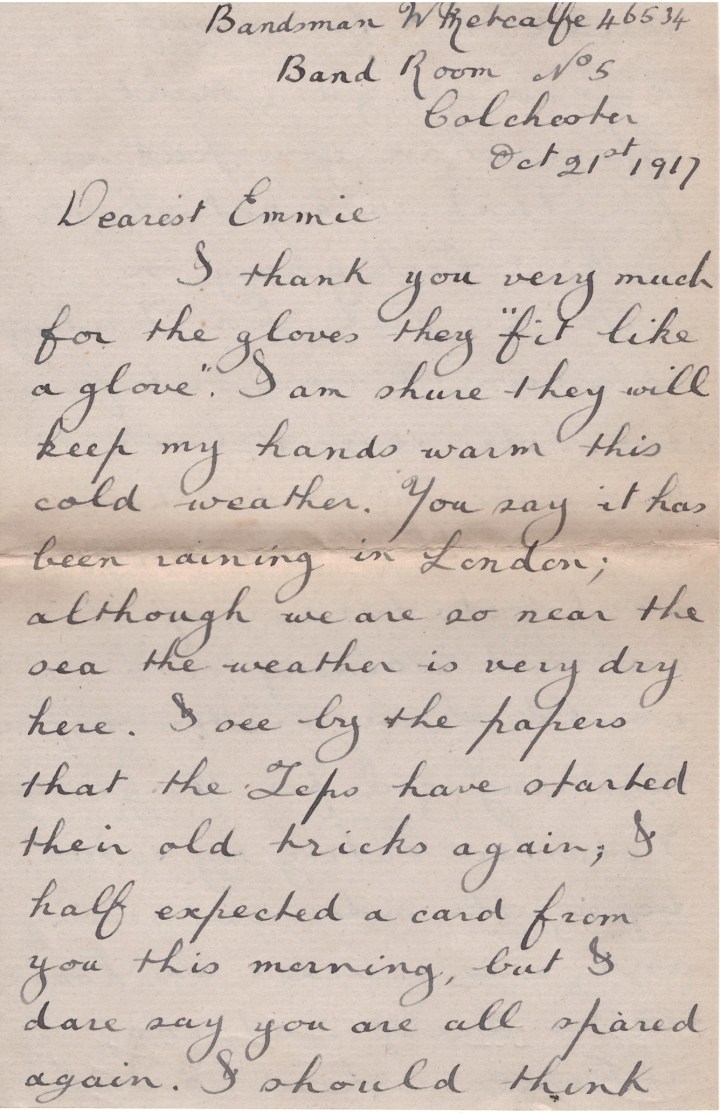 Bandsman W Metcalfe 46534
Band Room No 5
Colchester
Oct 21st 1917
Dearest Emmie
I thank you very much
for the gloves they "fit like
a glove". I am shure they will
keep my hands warm this
cold weather. You say it has
been raining in London;
although we are so near the
sea the weather is very dry
here. I see by the papers
that the Zeps have started
their old tricks again; I
half expected a card from
you this morning, but I
dare say you are all spared
again. I should think